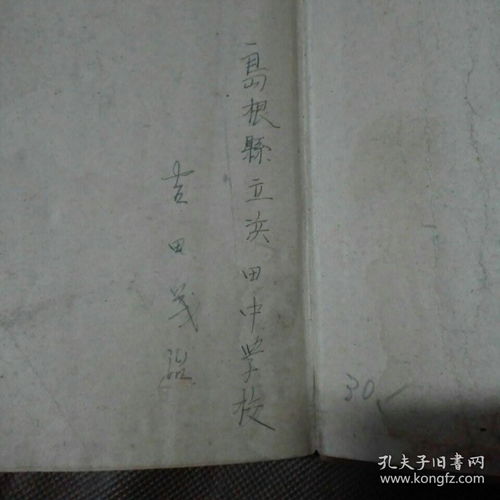 島根縣立浜田中学校
吉田茂
30
孔夫子旧书网
kongfz.com